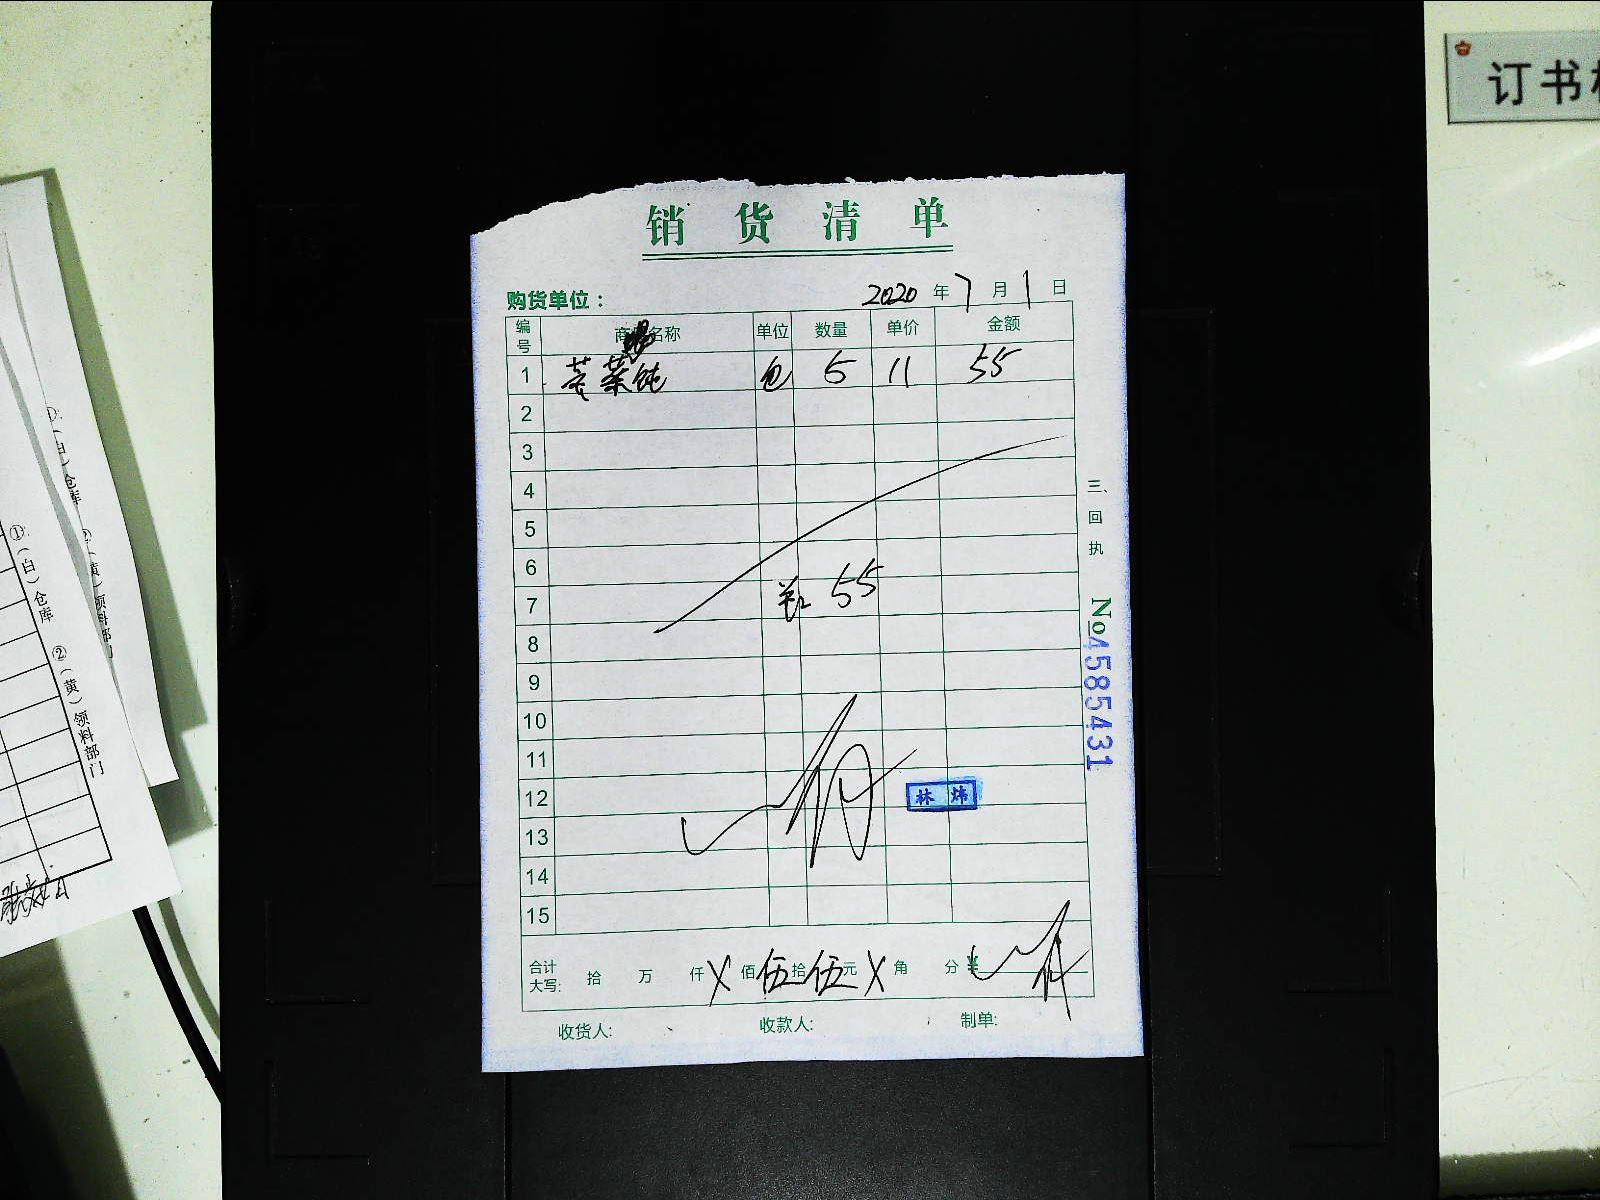 订书机
销货清单
购货单位：
2020年7月1日
编号 商品名称 单位 数量 单价 金额
1 荠菜饨 包 5 11 55
2
3
4
5
6
7
55
8
9
10
11
12
林炜
13
14
15
合计大写: 拾 万 仟 X 佰 伍 拾 伍 元 X 角 分 ¥
收货人: 收款人: 制单:
三、回执
No4585431
①(白)仓库 ②(黄)领料部门
①(白)仓库 ②(黄)领料部门